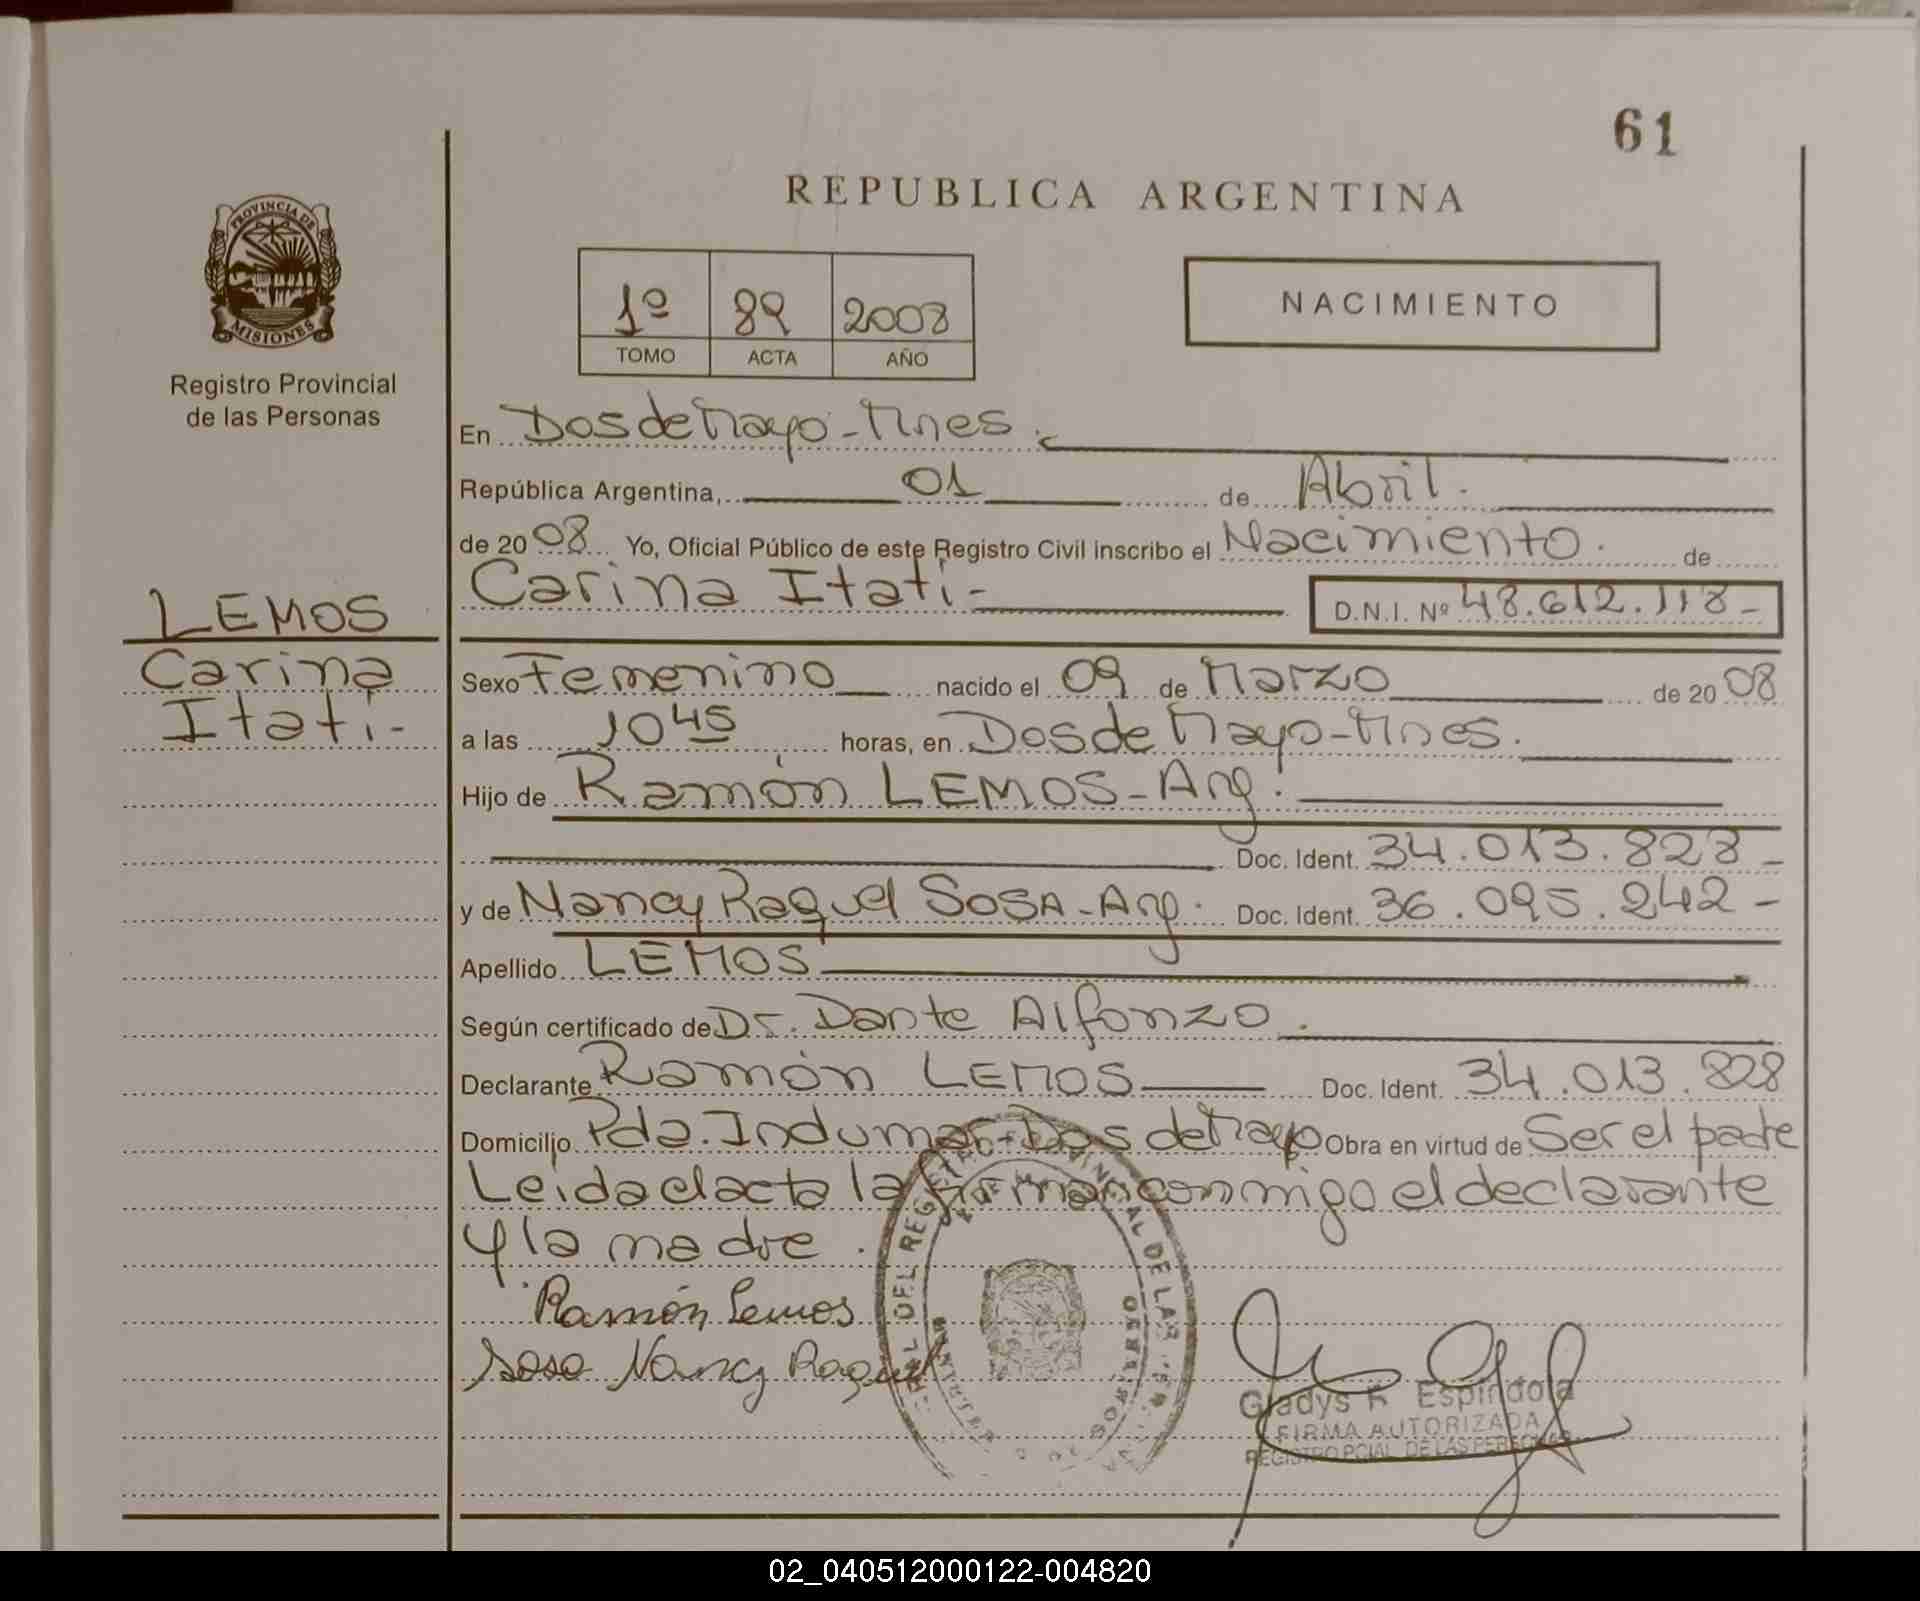 61
REPUBLICA ARGENTINA
PROVINCIA DE
MISIONES
Registro Provincial
de las Personas
1º 89 2008
TOMO ACTA AÑO
NACIMIENTO
En Dos de Mayo - Mnes.
República Argentina, 01 de Abril.
de 20 08 Yo, Oficial Público de este Registro Civil inscribo el Nacimiento. de
Carina Itatí - D.N.I. Nº 48.612.118-
LEMOS
Carina
Itatí -
Sexo Femenino nacido el 09 de Marzo de 20 08
a las 10 45 horas, en Dos de Mayo - Mnes.
Hijo de Ramón LEMOS - Arg.
Doc. Ident. 34.013.828-
y de Nancy Raquel SOSA - Arg. Doc. Ident. 36.095.242-
Apellido LEMOS
Según certificado de Dr. Dante Alfonzo.
Declarante Ramón LEMOS Doc. Ident. 34.013.828
Domicilio Pda. Indumar - Dos de Mayo Obra en virtud de Ser el padre
Leída el acta la firman conmigo el declarante
y la madre.
Ramón Lemos
Sosa Nancy Raquel
Gladys R Espíndola
FIRMA AUTORIZADA
REGISTRO PCIAL DE LAS PERSONAS
02_040512000122-004820